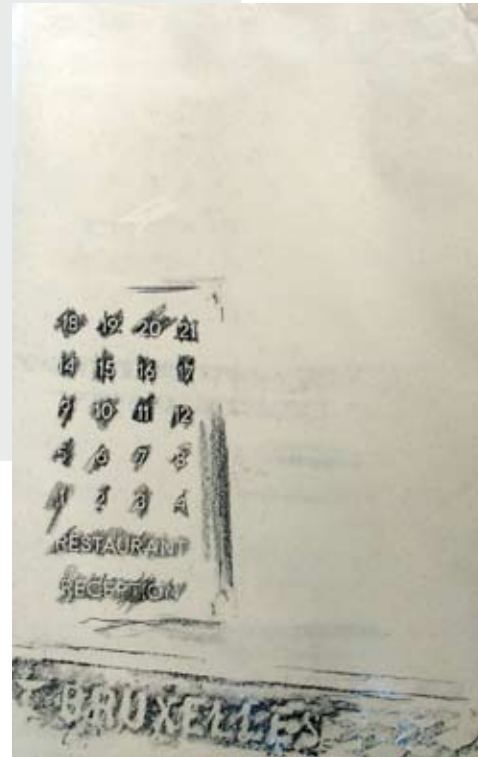 18 19 20 21
14 15 16 17
9 10 11 12
5 6 7 8
1 2 3 4
RESTAURANT
RECEPTION
BRUXELLES